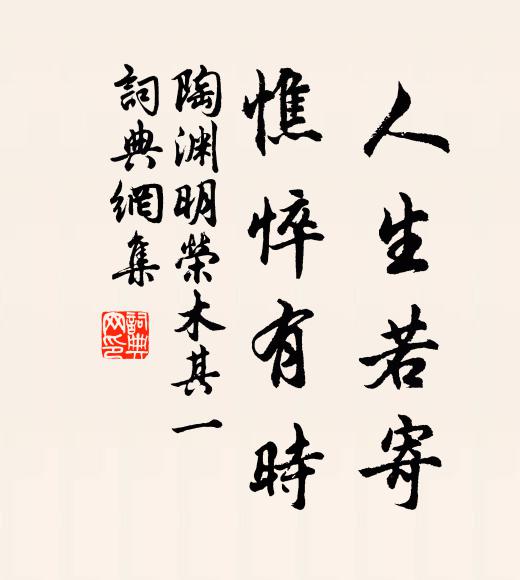 人生若寄
憔悴有時
陶渊明榮木其一
詞典網集
詞典
网印